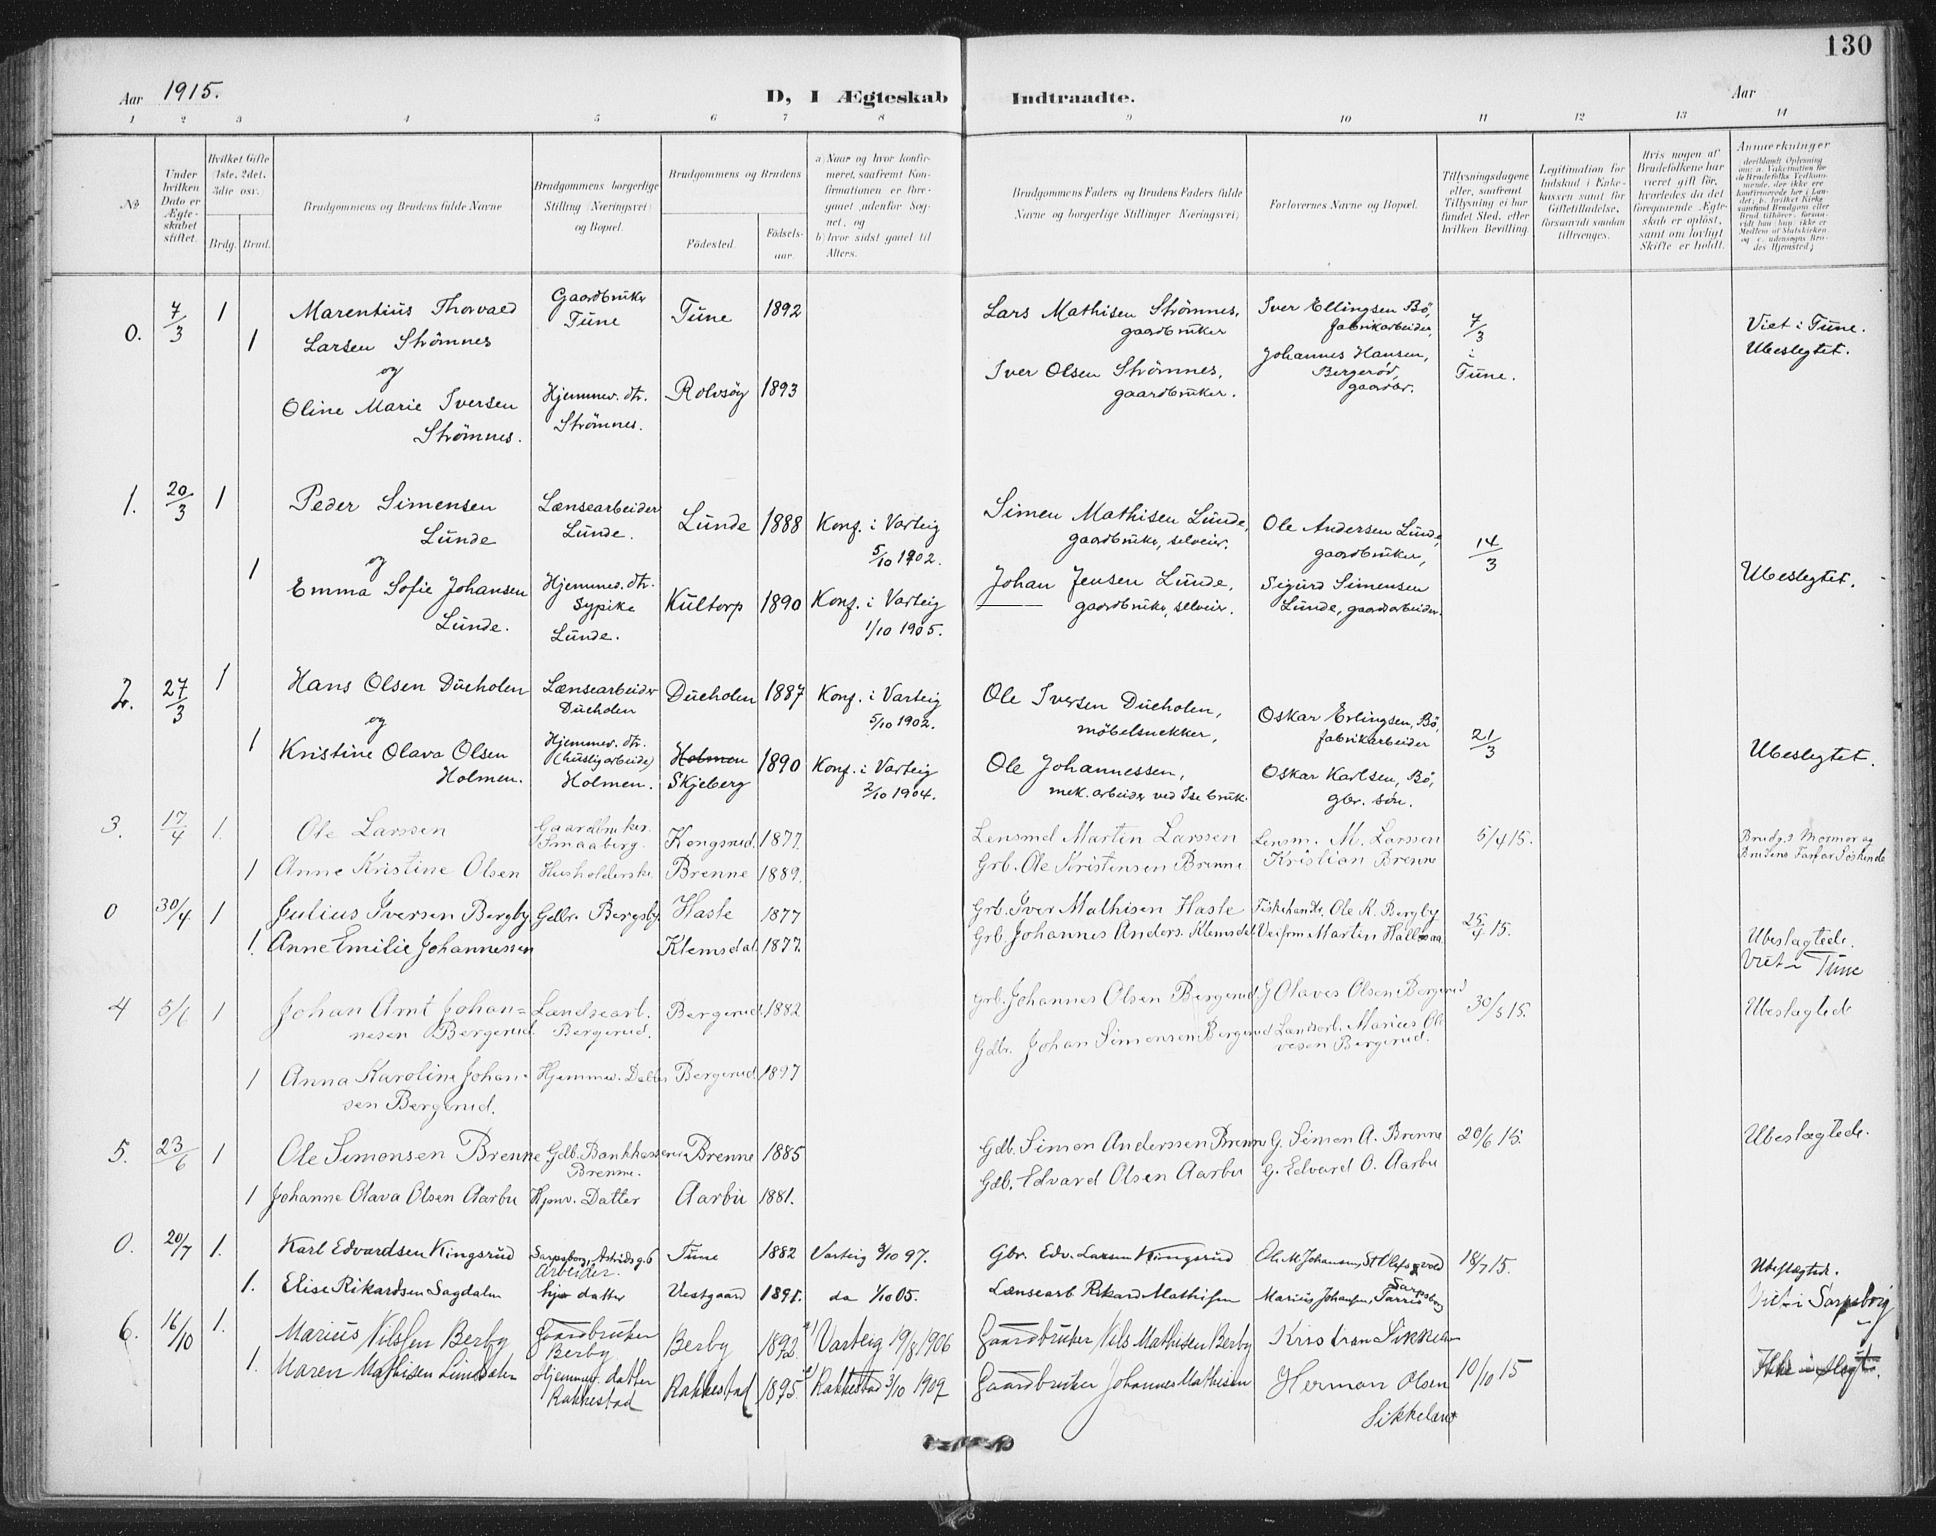 130
Aar 1915.
D, I Ægteskab Indtraadte.
Aar
1 2 3 4 5 6 7 8 9 10 11 12 13 14
No
Under hvilken Dato er Ægteskabet stiftet.
Hvilket Gifte (1ste, 2det, 3die osv.
Brdg. Brud.
Brudgommens og Brudens fulde Navne
Brudgommens borgerlige Stilling (Næringsvei) og Bopæl.
Brudgommens og Brudens
Fødested.
Fødselsaar.
a) Naar og hvor konfirmeret, saafremt Konfirmationen er foregaaet udenfor Sognet, og
b) hvor sidst gaaet til Alters.
Brudgommens Faders og Brudens Faders fulde Navne og borgerlige Stillinger (Næringsvei)
Forlovernes Navne og Bopæl.
Tillysningsdagene eller, saafremt Tillysning ei har fundet Sted, efter hvilken Bevilling.
Legitimation for Indskud i Enkekassen samt for Giftetilladelse, forsaavidt saadan tiltrænges.
Hvis nogen af Brudefolkene har været gift før, hvorledes da det foregaaende Ægteskab er opløst, samt om lovligt Skifte er holdt.
Anmerkninger
0. 7/3 1 Marentius Thorvald Gaardbruker Tune 1892 Lars Mathisen Strömnes, Iver Ellingsen Bö, 7/3
Larsen Strömnes Tune gaardbruker fabrikarbeider, i Viet i Tune.
og 1 Iver Olsen Strömnes, Johannes Hansen, Tune. Ubeslegtet.
Oline Marie Iversen Hjemmev. dtr. Rolvsöy 1893 gaardbruker. Bergeröd,
Strömnes. Strömnes. gaardbr.
1. 20/3 1 Peder Simensen Lænsearbeider Lunde 1888 Konf. i Varteig Simen Mathisen Lunde, Ole Andersen Lunde, 14/3
Lunde Lunde. 5/10 1902. gaardbruker, selveier. gaardbruker,
og
1 Emma Sofie Johansen Hjemmev. dtr. Kultorp 1890 Konf. i Varteig Johan Jensen Lunde, Sigurd Simensen Ubeslegtet.
Lunde. Sypike Lunde. 1/10 1905. gaardbruker, selveier. Lunde, gaardsarbeider.
2. 27/3 1 Hans Olsen Ducholen Lænsearbeider Ducholen 1887 Konf. i Varteig Ole Iversen Ducholen, Oskar Erlingsen, Bö, 21/3
og Ducholen 5/10 1902. möbelsnekker, fabrikarbeider
1 Kristine Olava Olsen Hjemmev. dtr. Holmen 1890 Konf. i Varteig Ole Johannessen, Oskar Karlsen, Bö, Ubeslegtet.
Holmen. (huslig arbeide) Holmen. Skjeberg 2/10 1904. mek. arbeider ved Ise bruk. gbr. sön.
3. 17/4 1. Ole Larssen Gaardbruker. Smaaberg. Kongsrud. 1877. Lensmd Martin Larssen Lensm. M. Larssen 5/4 15. Brudg.s Mormor og
1 Anne Kristine Olsen Husholderske Brenne 1889. Grb. Ole Kristensen Brenne Kristian Brenne Brudens Farfar Söskende
0 30/4 1 Julius Iversen Bergby Gdbr. Bergsby. Hasle 1877 Grb. Iver Mathisen Hasle Fiskehandl. Ole K. Bergby 25/4 15.
1. Anne Emilie Johannessen Klemsdal 1877. Grb. Johannes Anders. Klemsdal. Veifrm Martin Ubeslagtede.
Viet i Tune
4 5/6 1 Johan Arnt Johan= Landsearb. Bergerud. 1882 Grb. Johannes Olsen Bergerud. G Olaves Olsen Bergerud 30/5 15. Ubeslagtede
nesen Bergerud. Bergerud. Gdbr. Johan Simensen Bergerud Landsarb. Marius Ole
vesen Bergerud.
1 Anna Karoline Johan- Hjemmev. Datter Bergerud. 1897
sen Bergerud.
5. 23/6 1 Ole Simonsen Brenne Gdb. Bankkasserer Brenne 1885 Gdb. Simon Anderssen Brenne G. Simon A. Brenne 20/6 15. Ubeslagtede.
Brenne. Gdb. Edvard Olsen Aarbu G. Edvard O. Aarbu
1 Johanne Olava Olsen Aarbu Hjmv. Datter Aarbu 1881.
0. 20/7 1. Karl Edvardsen Kingsrud Sarpsborg, Astridsg. 6 Arbeider. Tune 1882 Varteig 3/10 97. Gbr. Edv. Larsen Kingsrud Ole M Johansen, St Olafs vold 18/7 15. Ubeslægtede.
1. Elise Rikardsen Sagdalen hje datter Vestgaard 1891. do 1/10 05. Lænsearb Rikard Mathisen Marius Johansen, Tarris Sarpsborg Viet i Sarpsborg
6. 16/10 1. Marius Nilssen Berby Gaardbruker Berby 1892 a) Varteig 19/8 1906 Gaardbruker Nils Mathisen Berby Kristian Sikkeland
Berby
1. Maren Mathisen Lundalen Hjemmev. datter Rakkestad 1895 a) Rakkestad 3/10 1909 Gaardbruker Johannes Mathisen Herman Olsen 10/10 15 Ikke i slegt.
Rakkestad Sikkeland